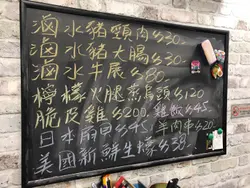 滷水豬頸肉 $30
滷水豬大腸 $30
滷水牛展 $80
檸檬火腿蒸烏頭 $120
脆皮雞 $200 雞飯 $45
日本扇貝 $45 羊肉串 $20
美國新鮮生蠔 $38